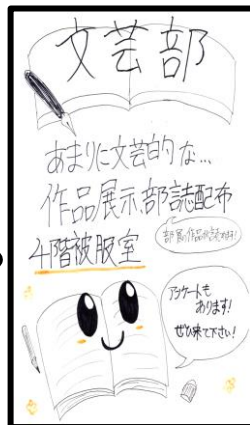 文芸部
あまりに文芸的な…
作品展示、部誌配布
4階被服室
アンケートも
あります!
ぜひ来て下さい!